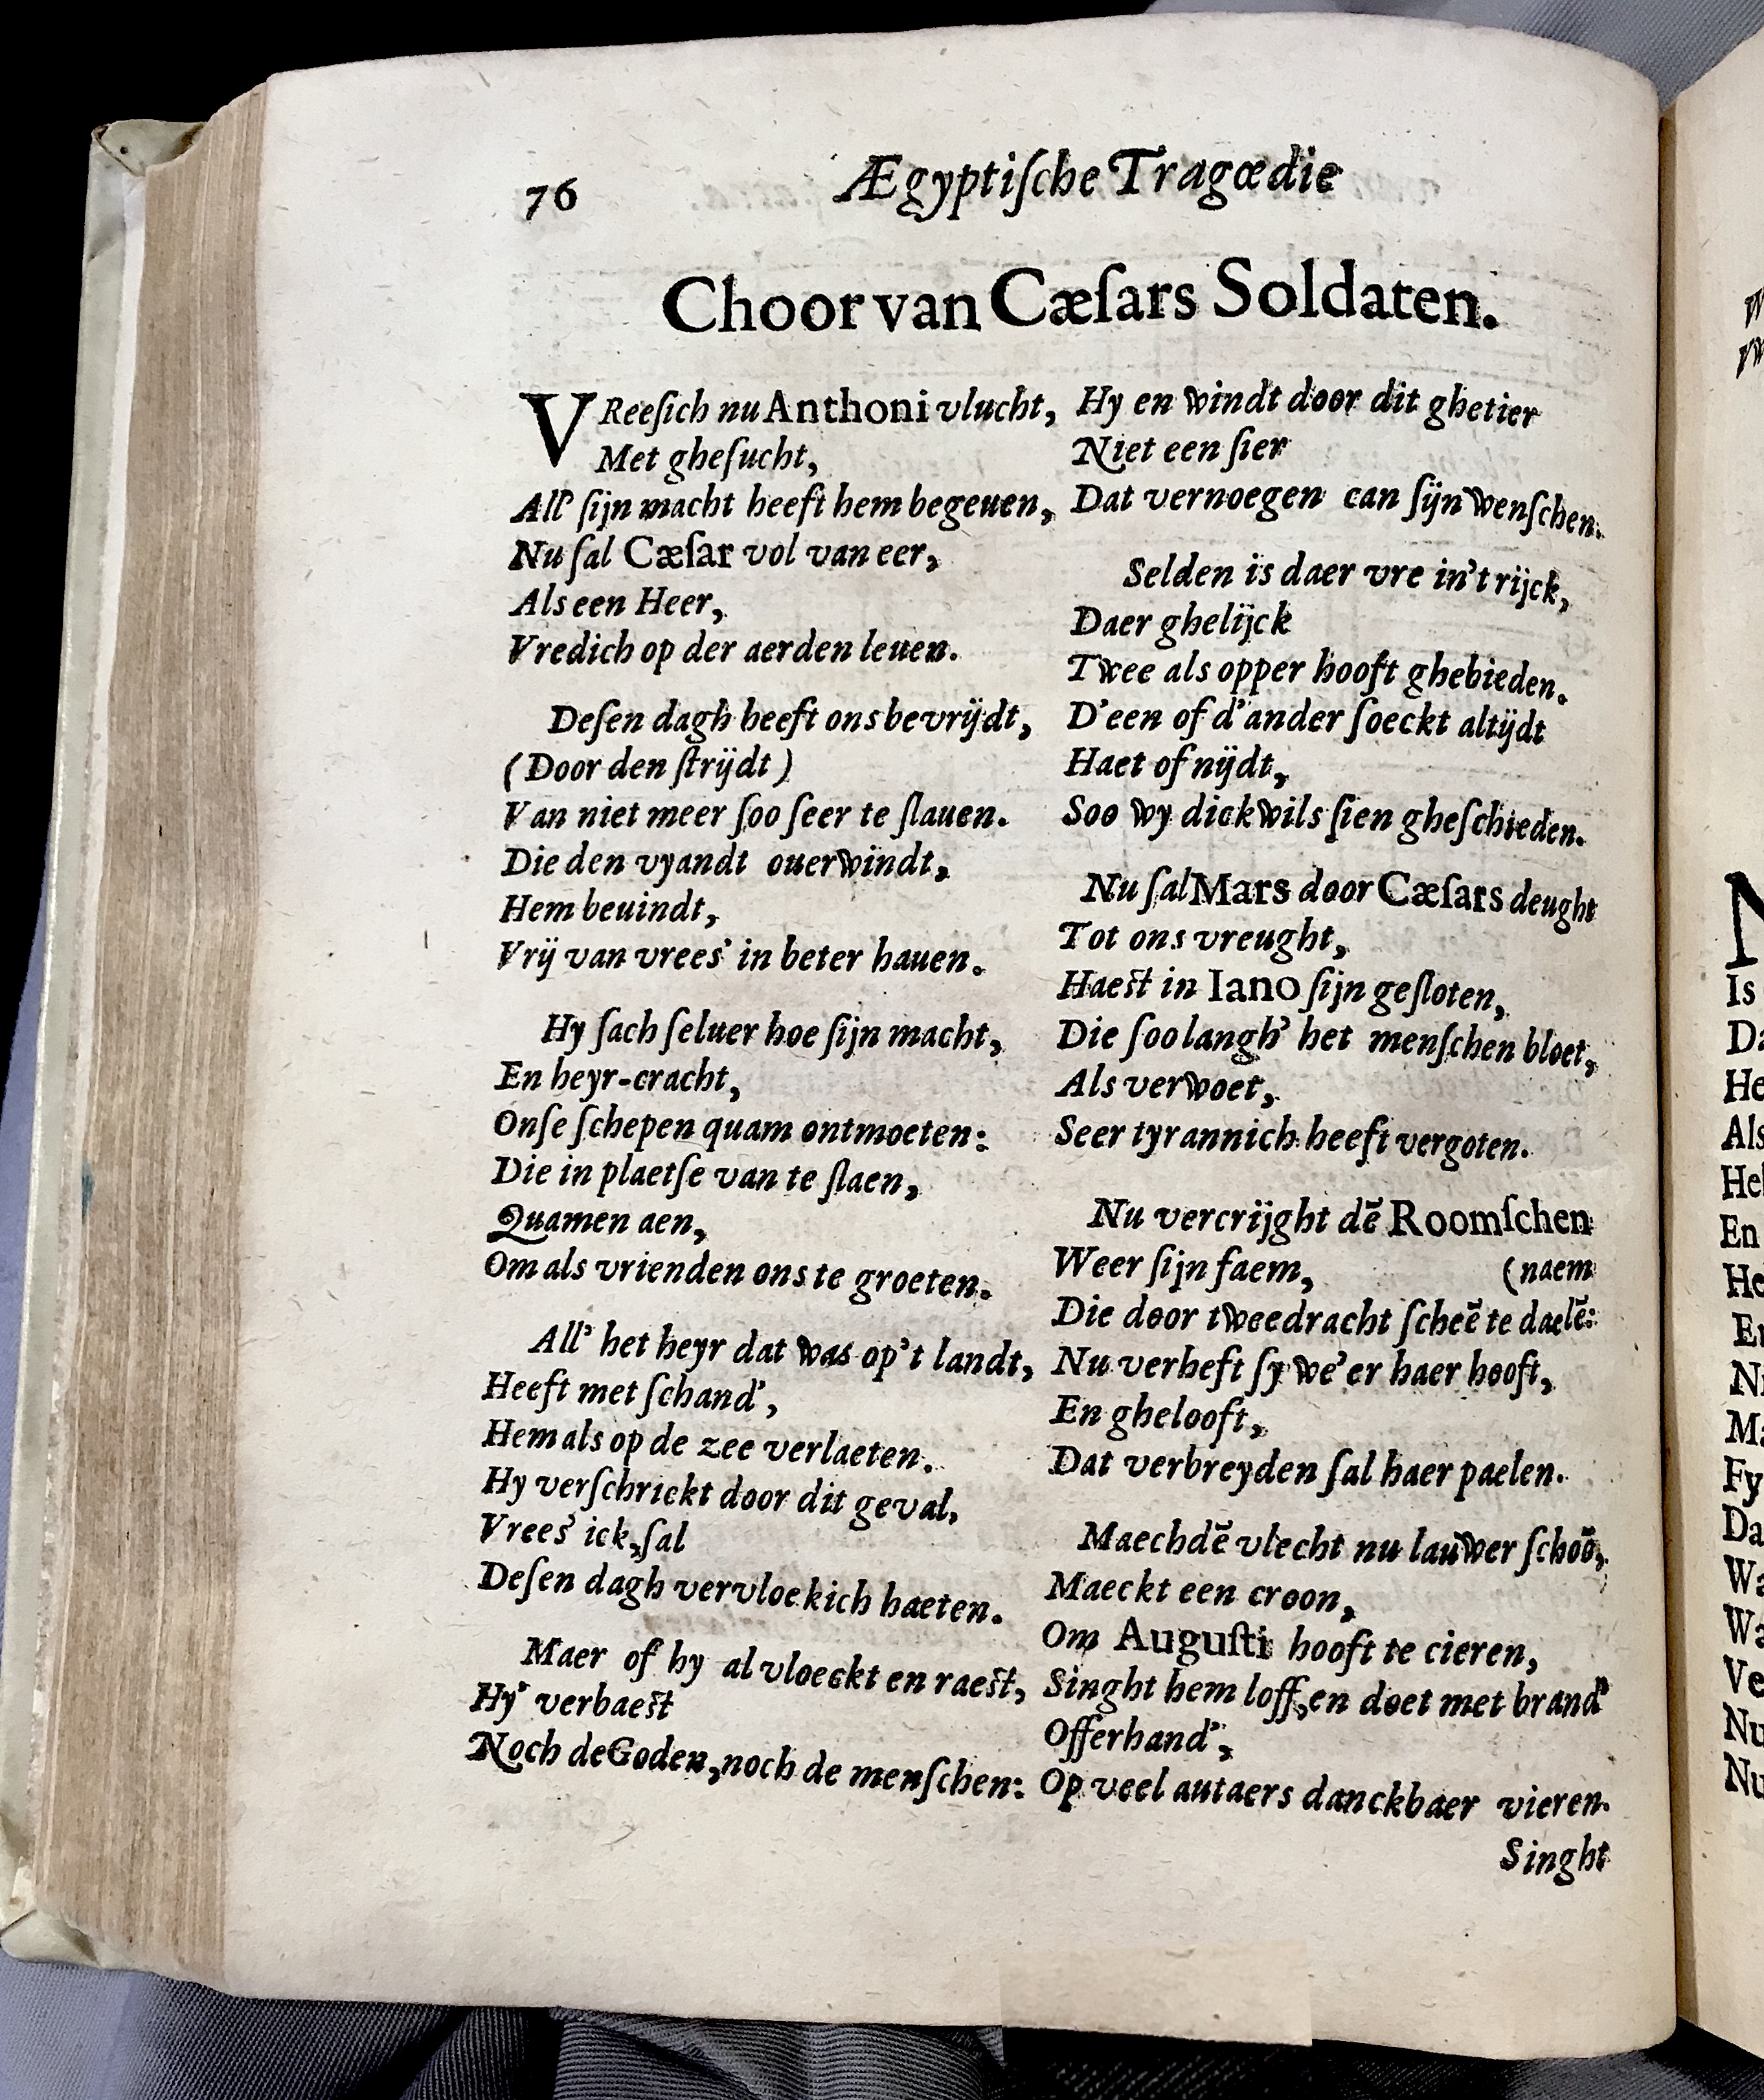 76
Ægyptiſche Tragœdie
Choor van Cæſars Soldaten.
VReeſich nu Anthoni vlucht,
Met gheſucht,
All' ſijn macht heeft hem begeuen,
Nu ſal Cæſar vol van eer,
Als een Heer,
Vredich op der aerden leuen.
Deſen dagh heeft ons bevrijdt,
(Door den ſtrijdt)
Van niet meer ſoo ſeer te ſlauen.
Die den vyandt ouerwindt,
Hem beuindt,
Vrij van vrees' in beter hauen.
Hy ſach ſeluer hoe ſijn macht,
En heyr-cracht,
Onſe ſchepen quam ontmoeten:
Die in plaetſe van te ſlaen,
Quamen aen,
Om als vrienden ons te groeten.
All' het heyr dat was op't landt,
Heeft met ſchand',
Hem als op de zee verlaeten.
Hy verſchrickt door dit geval,
Vrees' ick, ſal
Deſen dagh vervloekich haeten.
Maer of hy al vloeckt en raeſt,
Hy' verbaeſt
Noch de Goden, noch de menſchen:
Hy en windt door dit ghetier
Niet een ſier
Dat vernoegen can ſijn wenſchen.
Selden is daer vre in't rijck,
Daer ghelijck
Twee als opper hooft ghebieden.
D'een of d'ander ſoeckt altijdt
Haet of nijdt,
Soo wy dickwils ſien gheſchieden.
Nu ſal Mars door Cæſars deught
Tot ons vreught,
Haeſt in Iano ſijn geſloten,
Die ſoo langh' het menſchen bloet,
Als verwoet,
Seer tyrannich heeft vergoten.
Nu vercrijght dē Roomſchen
Weer ſijn faem, (naem
Die door tweedracht ſcheē te daelē:
Nu verheft ſy we'er haer hooft,
En ghelooft,
Dat verbreyden ſal haer paelen.
Maechdē vlecht nu lauwer ſchoō,
Maeckt een croon,
Om Auguſti hooft te cieren,
Singht hem loff, en doet met brand'
Offerhand',
Op veel autaers danckbaer vieren.
Singht
Is
Da
He
Als
Hel
En
He
En
Ma
Fy
Da
Wa
Wa
Ve
Nu
Nu